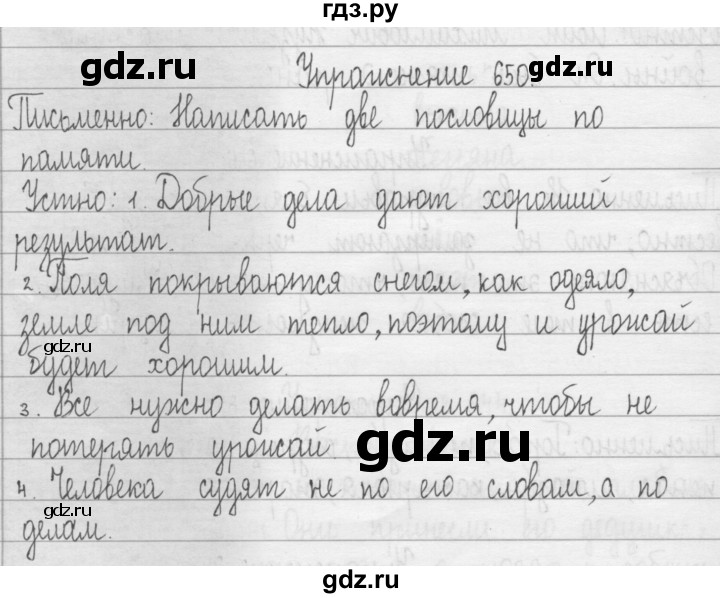 гдз.ру
gdz.ru gdz.ru
Упражнение 650.
Письменно: Написать две пословицы по
памяти.
Устно: 1. Добрые дела дают хороший
результат.
2. Поля покрываются снегом, как одеяло,
земле под ним тепло, поэтому и урожай
будет хорошим.
gdz.ru gdz.ru
3. Все нужно делать вовремя, чтобы не
потерять урожай.
gdz.ru
4. Человека судят не по его словам, а по
делам.
gdz.ru
gdz.ru